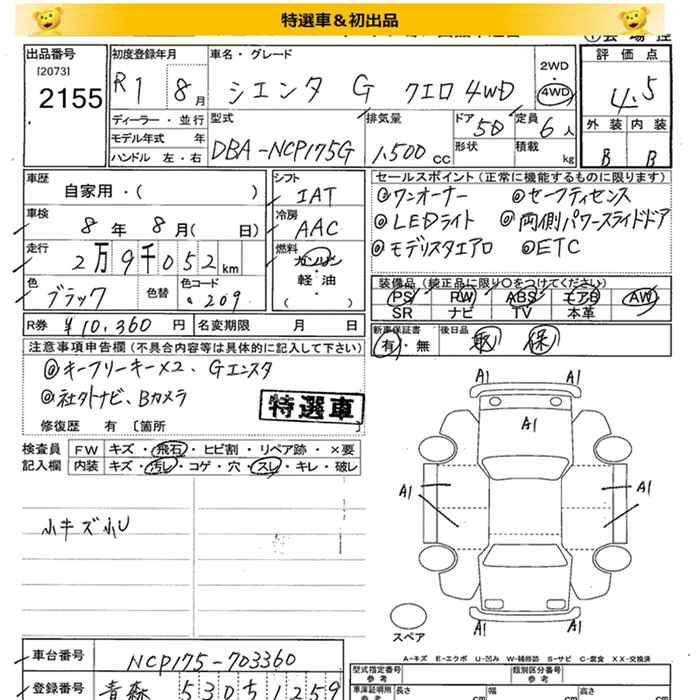 特選車&初出品
出品番号
[2073]
2155
初度登録年月
R1 8月
車名・グレード
シエンタ G クエロ 4WD
2WD
・
4WD
評価点
4.5
外装 内装
B B
ディーラー・並行
モデル年式 年
ハンドル 左・右
型式
DBA-NCP175G
排気量
1,500cc
ドア 5D
形状
定員 6人
積載 kg
車歴
自家用・( )
車検
8年 8月( 日)
走行
2万9千052km
色
ブラック
色替
色コード
209
シフト
IAT
冷房
AAC
燃料
ガソリン
軽・油
・( )
セールスポイント(正常に機能するものに限ります)
◎ワンオーナー ◎セーフティセンス
◎LEDライト ◎両側パワースライドドア
◎モデリスタエアロ ◎ETC
装備品(純正品に限り○をつけてください)
PS PW ABS エアB AW
SR ナビ TV 本革
R券 ¥10,360円 名変期限 月 日
新車保証書
有・無
後日品
取 保
注意事項申告欄(不具合内容等は具体的に記入して下さい)
◎キーフリーキー×2、Gエンスタ
◎社外ナビ、Bカメラ
特選車
修復歴 有 〔箇所 〕
検査員
記入欄
FW キズ・飛石・ヒビ割・リペア跡・×要
内装 キズ・汚レ・コゲ・穴・スレ・キレ・破レ
小キズ小U
A1 A1
A1
A1 A1
A1 A1
スペア
A-キズ E-エクボ U-凹み W-補修跡 S-サビ C-腐食 XX-交換済
車台番号 NCP175-703360
登録番号 青森 530 ち 1259
型式指定番号
参考
類別区分番号
参考
車庫証明用
参考
長さ cm 幅 cm 高さ cm